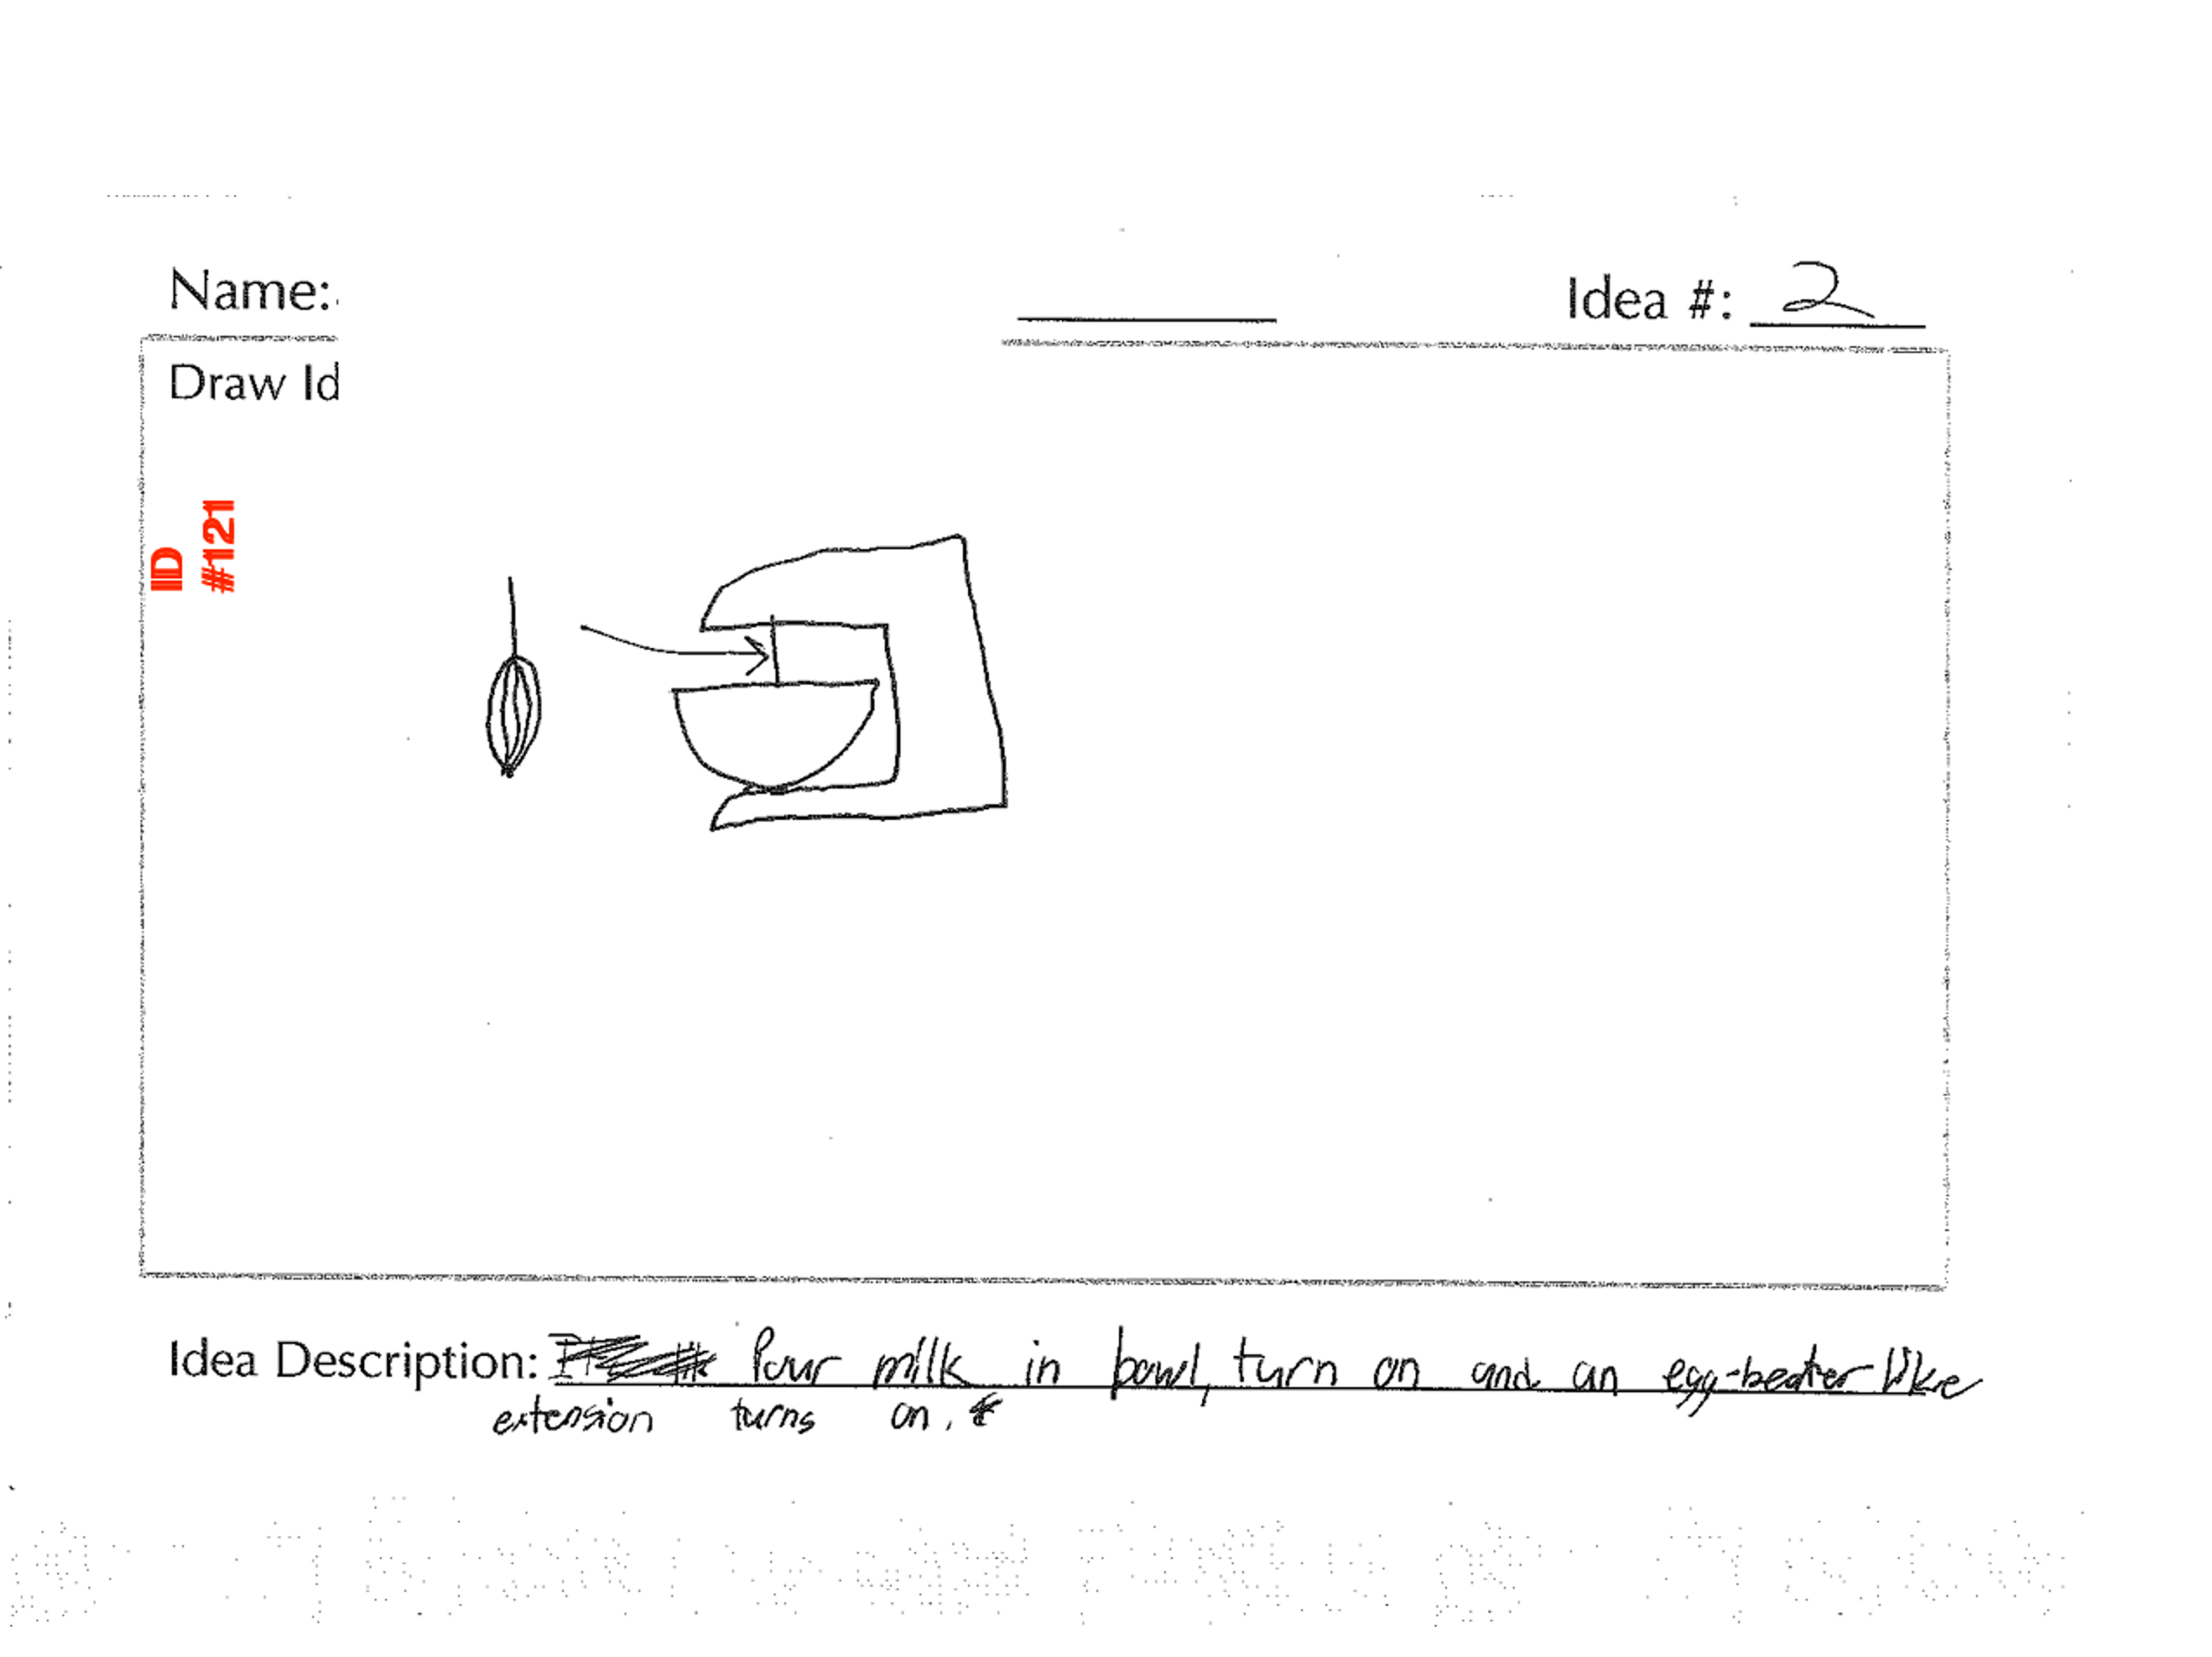 Name:
Idea #: 2
Draw Id
ID
#121
Idea Description: Pour milk in bowl, turn on and an egg-beater like
extension turns on.